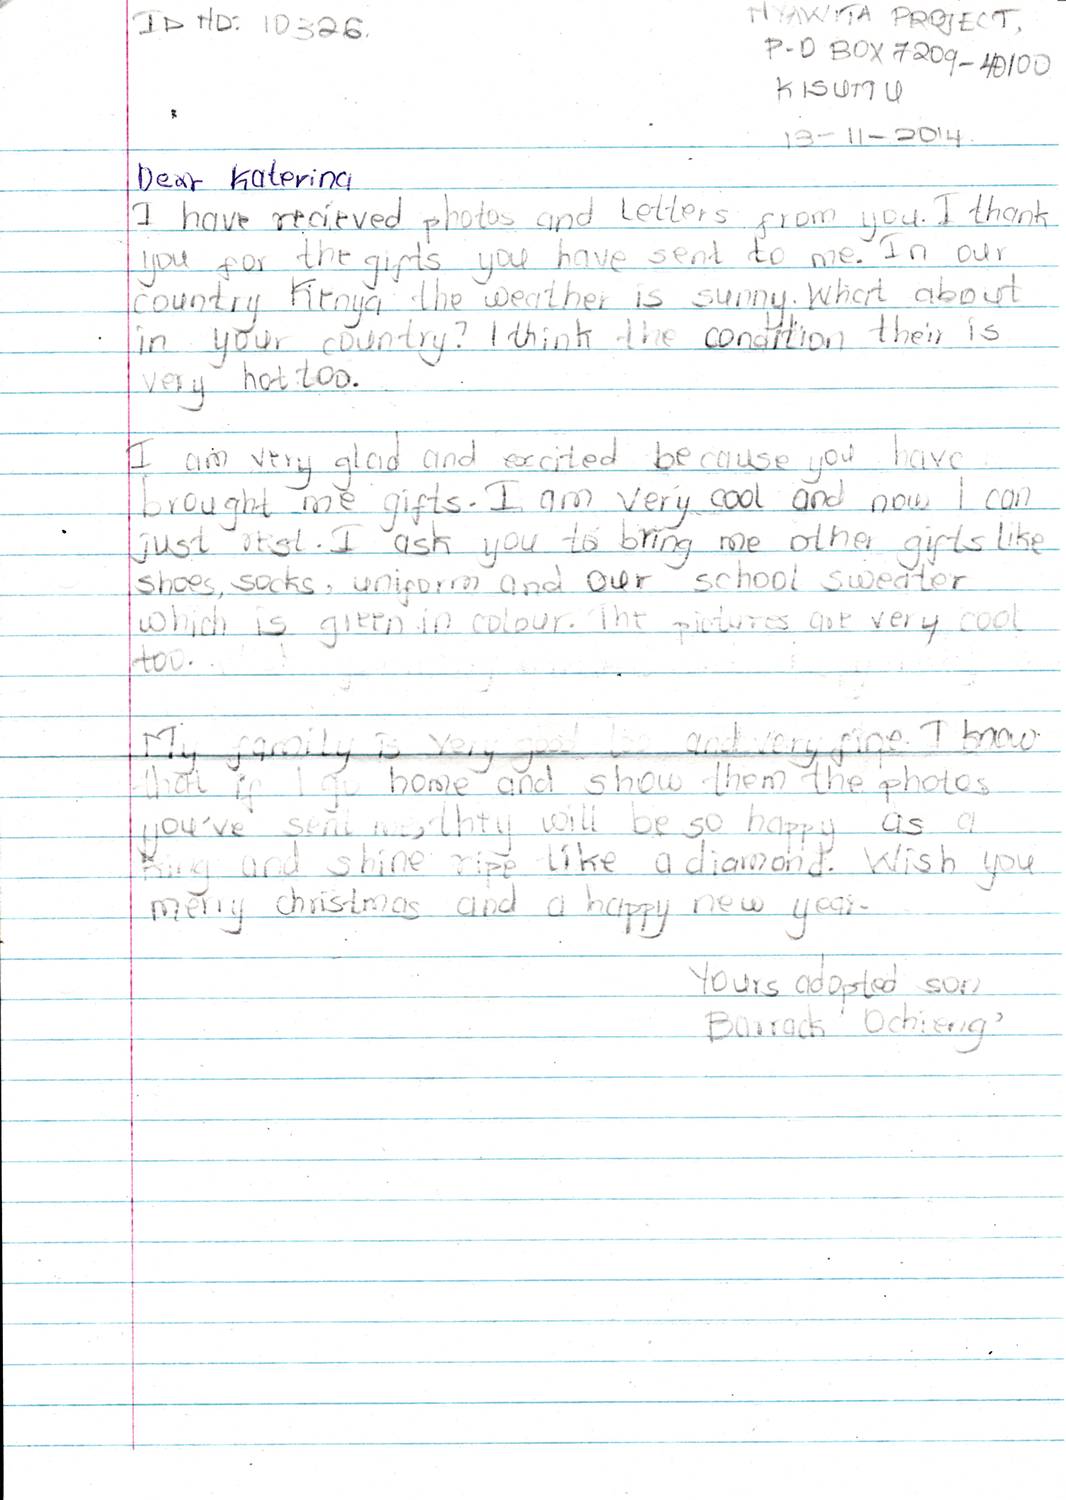 ID NO: 10326.
NYAWITA PROJECT,
P-O BOX 7209-40100
KISUMU
13-11-2014.
Dear Katerina
I have recieved photos and Letters from you. I thank
you for the gifts you have sent to me. In our
country Kenya the weather is sunny. What about
in your country? I think the condition their is
very hot too.
I am very glad and excited because you have
brought me gifts. I am very cool and now I can
just rest. I ask you to bring me other gifts like
shoes, socks, uniform and our school sweater
which is green in colour. The pictures are very cool
too.
My family is very good too and very fine. I know
that if I go home and show them the photos
you've sent me, they will be so happy as a
King and shine ripe like a diamond. Wish you
merry christmas and a happy new year.
Yours adopted son
Barrack 'Ochieng'